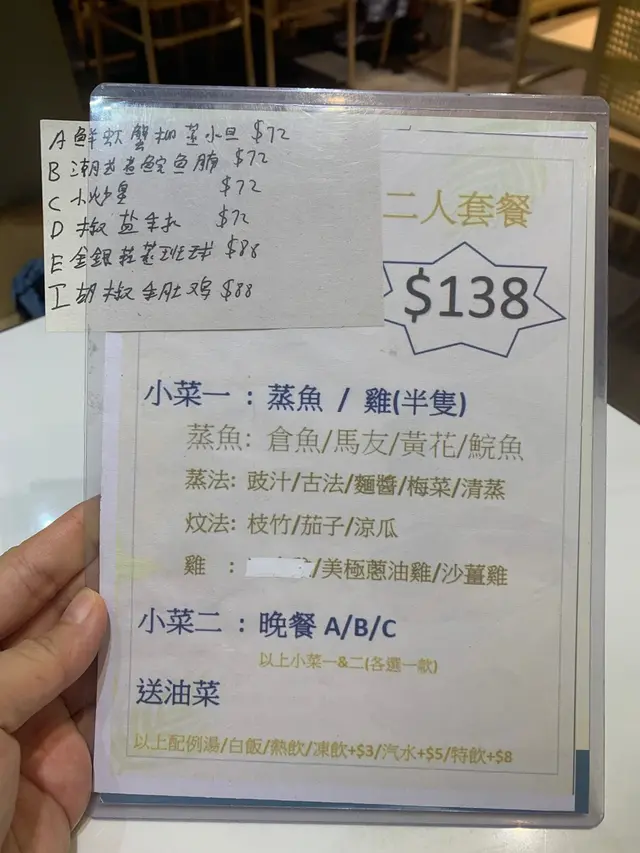 A 鮮蚧蟹柳蒸小豆 $72
B 潮式煮鯇魚腩 $72
C 小炒皇 $72
D 椒盐 $72
E 金銀蒜蒸班球 $88
胡椒 肚鸡 $88
二人套餐
$138
小菜一 : 蒸魚 / 雞(半隻)
蒸魚: 倉魚/馬友/黃花/鯇魚
蒸法: 豉汁/古法/麵醬/梅菜/清蒸
炆法: 枝竹/茄子/涼瓜
雞 : /美極蔥油雞/沙薑雞
小菜二 : 晚餐 A/B/C
以上小菜一&二(各選一款)
送油菜
以上配例湯/白飯/熱飲/凍飲+$3/汽水+$5/特飲+$8